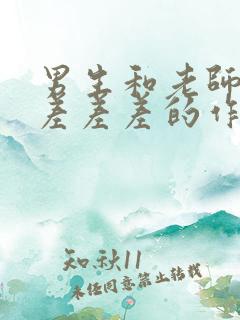 男生和老师
差差差的作
知秋11
未经同意禁止转载